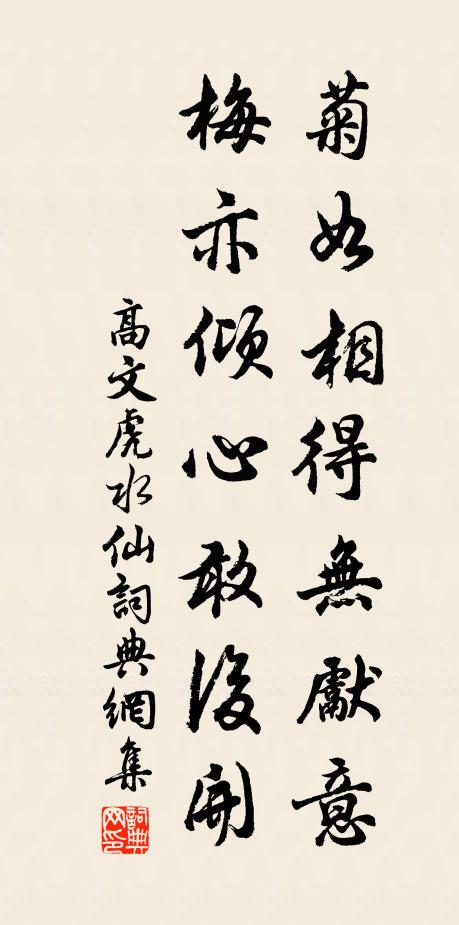 菊如相得無獻意
梅亦傾心敢後開
高文虎水仙詞典網集
詞典
網印